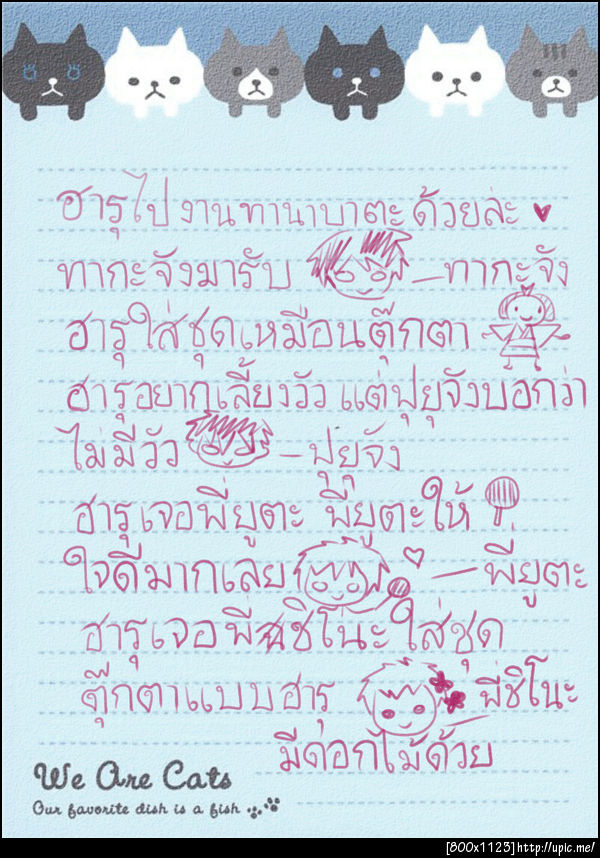 ฮารุไปงานทานาบาตะด้วยล่ะ ♥
ทากะจังมารับ – ทากะจัง
ฮารุใส่ชุดเหมือนตุ๊กตา
ฮารุอยากเลี้ยงวัว แต่ฟุยุจังบอกว่า
ไม่มีวัว – ฟุยุจัง
ฮารุเจอพี่ยูตะ พี่ยูตะให้
ใจดีมากเลย ♡ – พี่ยูตะ
ฮารุเจอพี่ชิโนะใส่ชุด
ตุ๊กตาแบบฮารุ – พี่ชิโนะ
มีดอกไม้ด้วย
We Are Cats
Our favorite dish is a fish
[800x1123]http://upic.me/